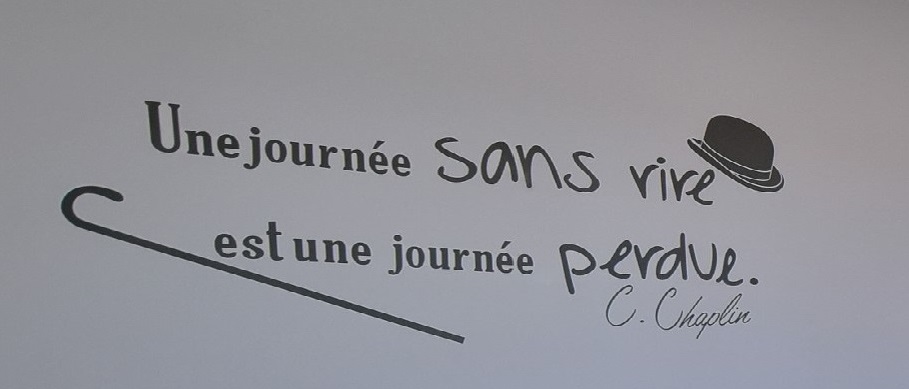 Une journée sans rire
est une journée perdue.
C. Chaplin